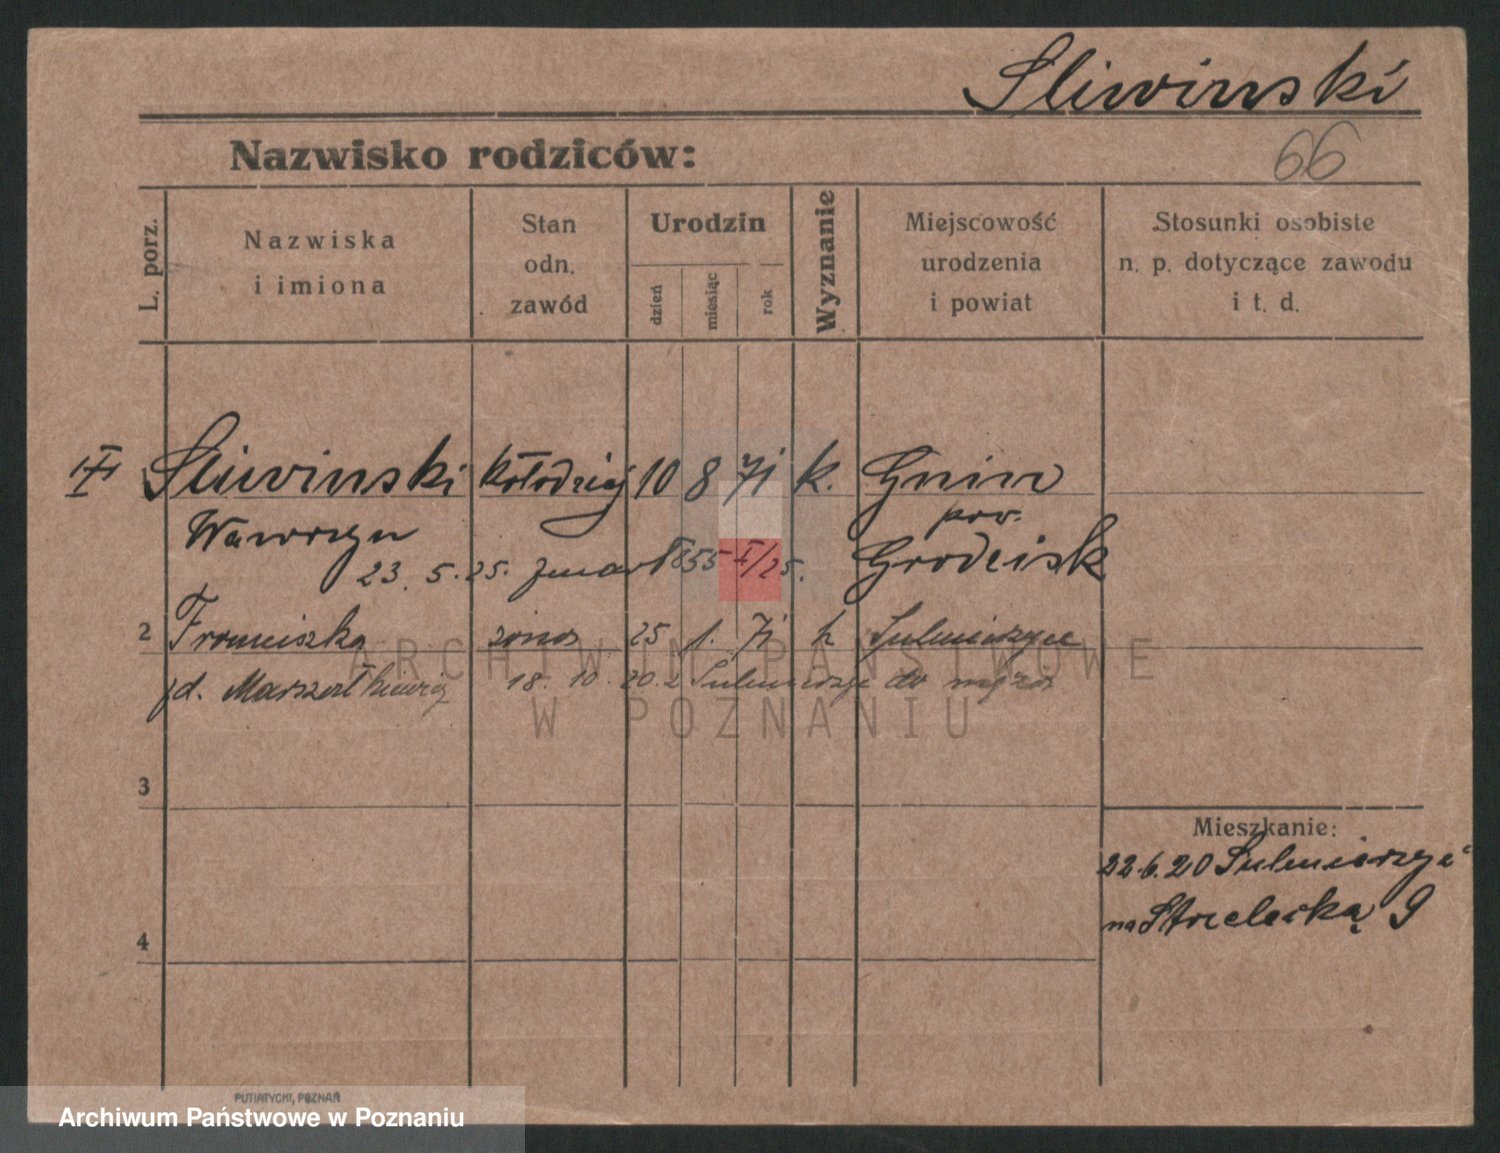 Sliwinski
66
Nazwisko rodziców:
L. porz.
Nazwiska
i imiona
Stan
odn.
zawód
Urodzin
dzień
miesiąc
rok
Wyznanie
Miejscowość
urodzenia
i powiat
Stosunki osobiste
n. p. dotyczące zawodu
i t. d.
Sliwinski kołodziej 10 8 71 k. Gnin
Wawrzyn pow.
Grodzisk
23. 5. 25. zmarł 855 I/25.
2 Franciszka żona 25 1. 71 k Sulmierzyce
18. 10. 20. z Sulmierzyc do męża
3
Mieszkanie:
22.6.20 Sulmierzyc
na Strzelecką 9
4
ARCHIWUM PAŃSTWOWE
W POZNANIU
PUTIATYCKI, POZNAŃ
Archiwum Państwowe w Poznaniu